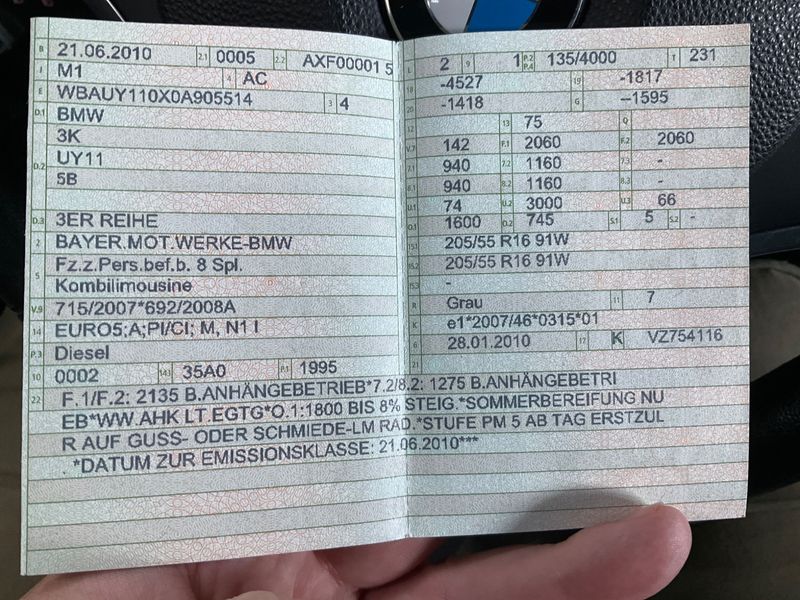 B 21.06.2010 2.1 0005 2.2 AXF00001 5
J M1 4 AC
E WBAUY110X0A905514 3 4
D.1 BMW
3K
D.2 UY11
5B
D.3 3ER REIHE
2 BAYER.MOT.WERKE-BMW
5 Fz.z.Pers.bef.b. 8 Spl.
Kombilimousine
V.9 715/2007*692/2008A
14 EURO5;A;PI/CI; M, N1 I
P.3 Diesel
10 0002 14.1 35A0 P.1 1995
L 2 9 1 P.2 P.4 135/4000 T 231
18 -4527 19 -1817
20 -1418 G --1595
12 13 75 Q
V.7 142 F.1 2060 F.2 2060
7.1 940 7.2 1160 7.3 -
8.1 940 8.2 1160 8.3 -
U.1 74 U.2 3000 U.3 66
O.1 1600 O.2 745 S.1 5 S.2 -
15.1 205/55 R16 91W
15.2 205/55 R16 91W
15.3 -
R Grau 11 7
K e1*2007/46*0315*01
6 28.01.2010 17 K VZ754116
21
22 F.1/F.2: 2135 B.ANHÄNGEBETRIEB*7.2/8.2: 1275 B.ANHÄNGEBETRI
EB*WW.AHK LT.EGTG*O.1:1800 BIS 8% STEIG.*SOMMERBEREIFUNG NU
R AUF GUSS- ODER SCHMIEDE-LM RAD.*STUFE PM 5 AB TAG ERSTZUL
.*DATUM ZUR EMISSIONSKLASSE: 21.06.2010***